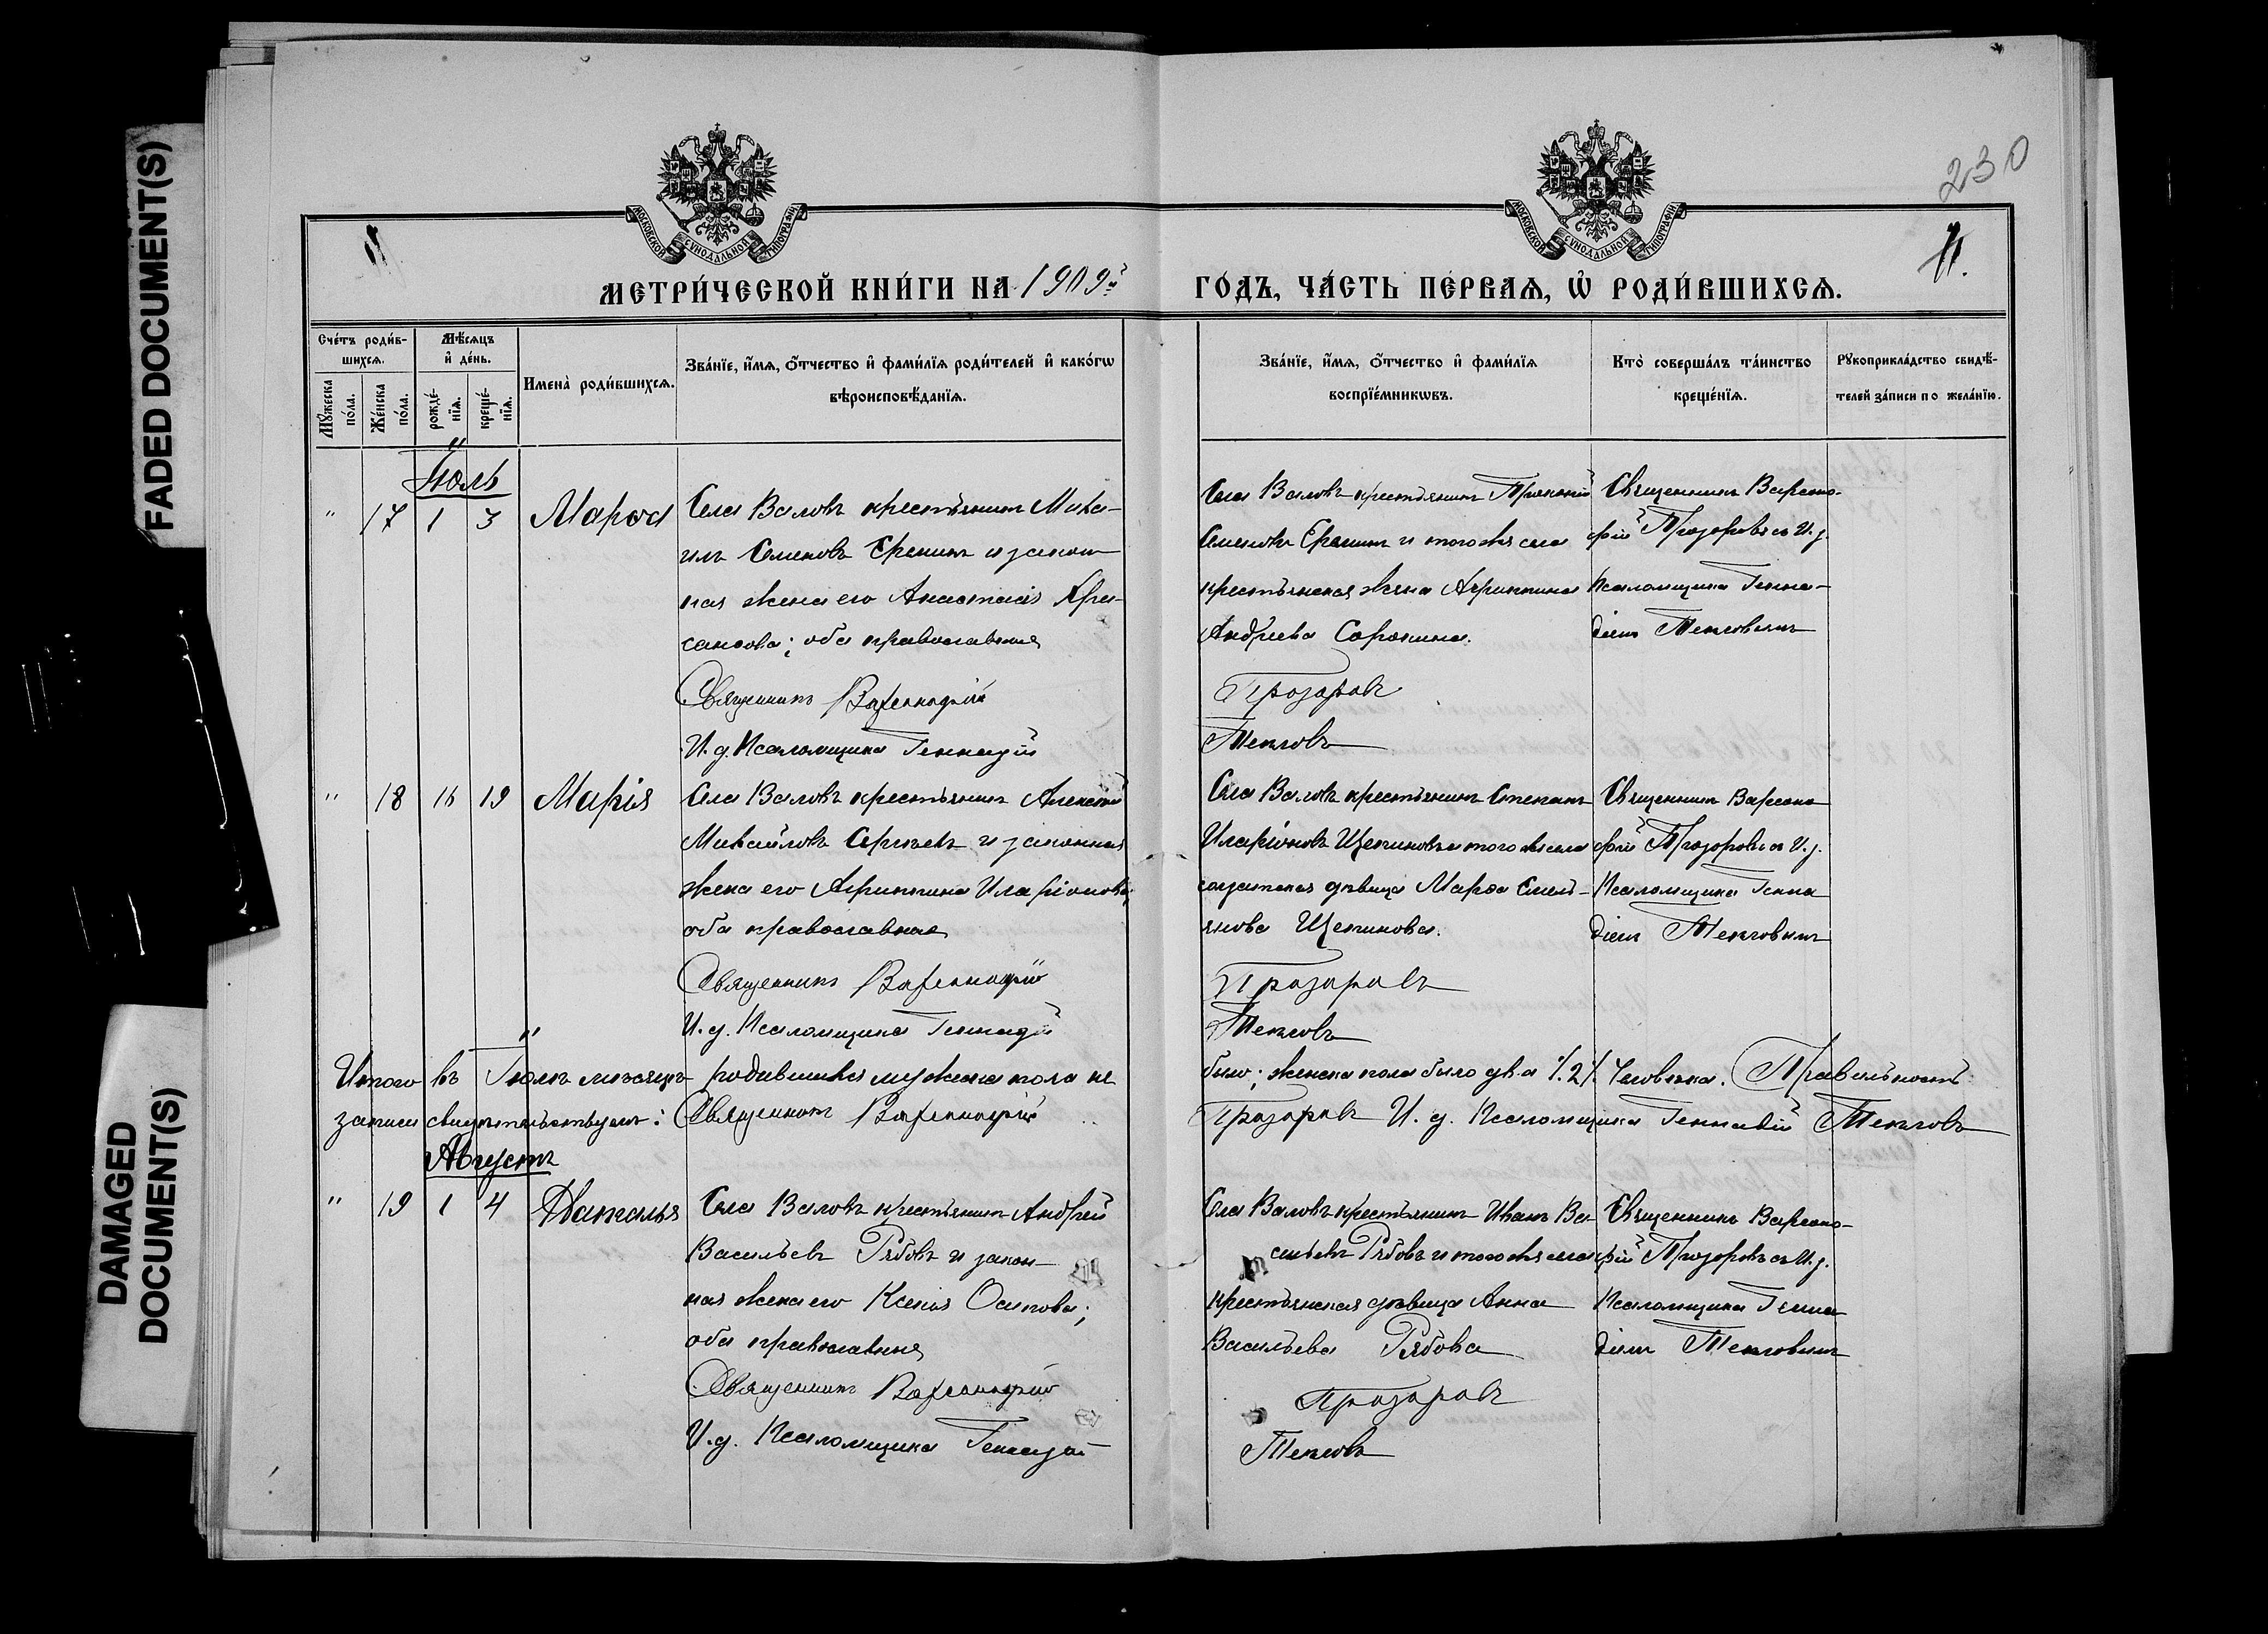 FADED DOCUMENT(S)
DAMAGED
DOCUMENT(S)
230
МОСКОВСКОЙ СѴНОДАЛЬНОЙ ТИПОГРАФІИ
МОСКОВСКОЙ СѴНОДАЛЬНОЙ ТИПОГРАФІИ
11
11.
МЕТРИ́ЧЕСКОЙ КНИ́ГИ НА 1909й ГО́ДЪ, ЧА́СТЬ ПЕ́РВАѦ, Ѡ҆ РОДИ́ВШИХСѦ.
Сче́тъ роди́в-
шихсѧ.
Мꙋ́жеска
по́ла.
Же́нска
по́ла.
Мѣ́сѧцъ
и҆ де́нь.
рожде́-
нїѧ.
креще́-
нїѧ.
И҆мена̀ роди́вшихсѧ.
Зва́нїе, и҆́мѧ, о҆́тчество и҆ фами́лїѧ роди́телей и҆ како́гѡ
вѣроисповѣ́данїѧ.
Зва́нїе, и҆́мѧ, о҆́тчество и҆ фами́лїѧ
воспрїе́мникѡвъ.
Кто̀ соверша́лъ та́инство
креще́нїѧ.
Рꙋкоприкла́дство свидѣ́-
телей за́писи по жела́нїю.
Іюль
" 17 1 3 Марѳа
Села Валовъ крестьянинъ Миха-
илъ Семеновъ Еремин и закон
ная жена его Анастасія Хри-
санѳова; оба православные
Священникъ Варсонофій
И. д. Псаломщика Геннадій
Села Валовъ крестьянинъ
Семеновъ и тогоже села
крестьянская жена Агриппина
Андреева Сорокина.
Прозоровъ
Теплов
Священникъ Варсоно-
фій Прозоровъ съ И. д.
Псаломщика Генна-
діем Тепловымъ
" 18 16 19 Марія
Села Валовъ крестьянинъ Алексѣй
Михайловъ Сергѣевъ и законная
жена его Агриппина Иларіонова;
оба православные
Священникъ Варсонофій
И. д. Псаломщика Геннадій
Села Валовъ крестьянинъ Степанъ
Иларіоновъ Щепиновъ и тогоже села
солдатская дѣвица Марѳа Емель-
янова Щепинова.
Прозоровъ
Теплов
Священникъ Варсоно
фій Прозоровъ съ И. д.
Псаломщика Генна
діем Тепловымъ
Итого въ Іюлѣ мѣсяцѣ родившихся мужеска пола не было; женска пола было два /.2/. человѣка. Правильность
записи свидѣтельствуемъ: Священникъ Варсонофій Прозоровъ И. д. Псаломщика Геннадій Теплов
Августъ
" 19 1 4 Наталья
Села Валовъ крестьянинъ Андрей
Васильевъ Рябовъ и закон-
ная жена его Ксенія Осипова;
оба православные
Священникъ Варсонофій
И. д. Псаломщика Геннадій
Села Валовъ крестьянинъ Иванъ Ва-
сильевъ Рябовъ и тогоже села
крестьянская дѣвица Анна
Васильева Рябова
Прозоровъ
Теплов
Священникъ Варсоно-
фій Прозоровъ съ И. д.
Псаломщика Генна
діем Тепловымъ